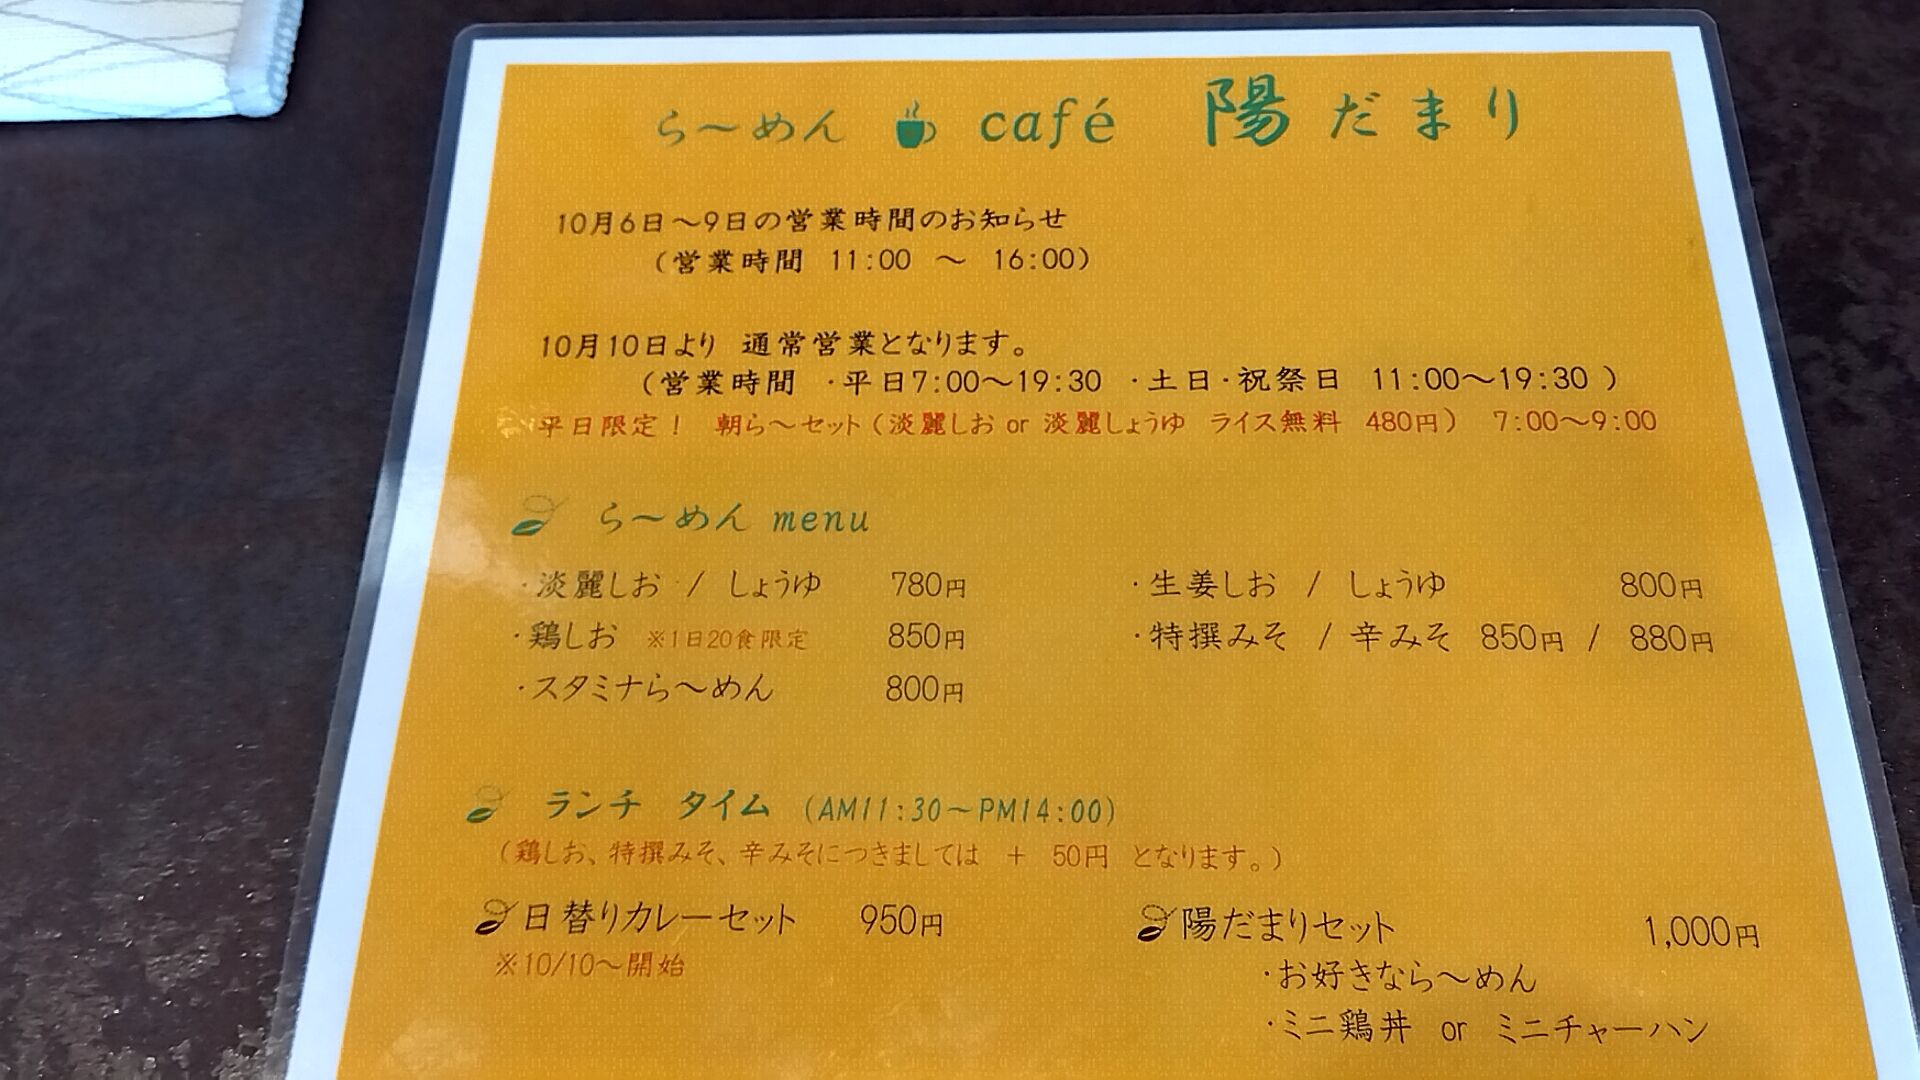 ら～めん café 陽だまり
10月6日～9日の営業時間のお知らせ
（営業時間 11:00 ～ 16:00）
10月10日より 通常営業となります。
（営業時間 ・平日7:00～19:30 ・土日・祝祭日 11:00～19:30 ）
平日限定！ 朝ら～セット（淡麗しお or 淡麗しょうゆ ライス無料 480円） 7:00～9:00
ら～めん menu
・淡麗しお / しょうゆ 780円
・生姜しお / しょうゆ 800円
・鶏しお ※1日20食限定 850円
・特撰みそ / 辛みそ 850円 / 880円
・スタミナら～めん 800円
ランチ タイム （AM11:30～PM14:00）
（鶏しお、特撰みそ、辛みそにつきましては ＋ 50円 となります。）
日替りカレーセット 950円
陽だまりセット 1,000円
※10/10～開始
・お好きなら～めん
・ミニ鶏丼 or ミニチャーハン